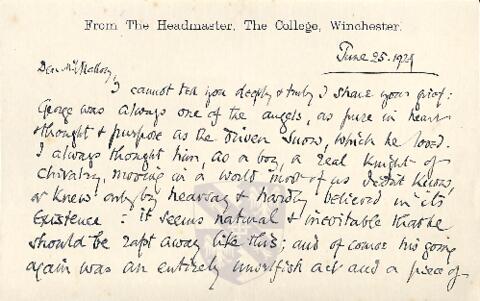 From The Headmaster, The College, Winchester.
June 25. 1924
Dear Mrs Mallory,
I cannot tell you deeply & truly I share your grief:
George was always one of the angels, as pure in heart
& thought & purpose as the driven snow, which he loved.
I always thought him, as a boy, a real Knight of
Chivalry, moving in a world most of us didn't know,
or knew only by hearsay & hardly believed in its
existence: it seems natural & inevitable that he
should be rapt away like this; and of course his going
again was an entirely unselfish act and a piece of